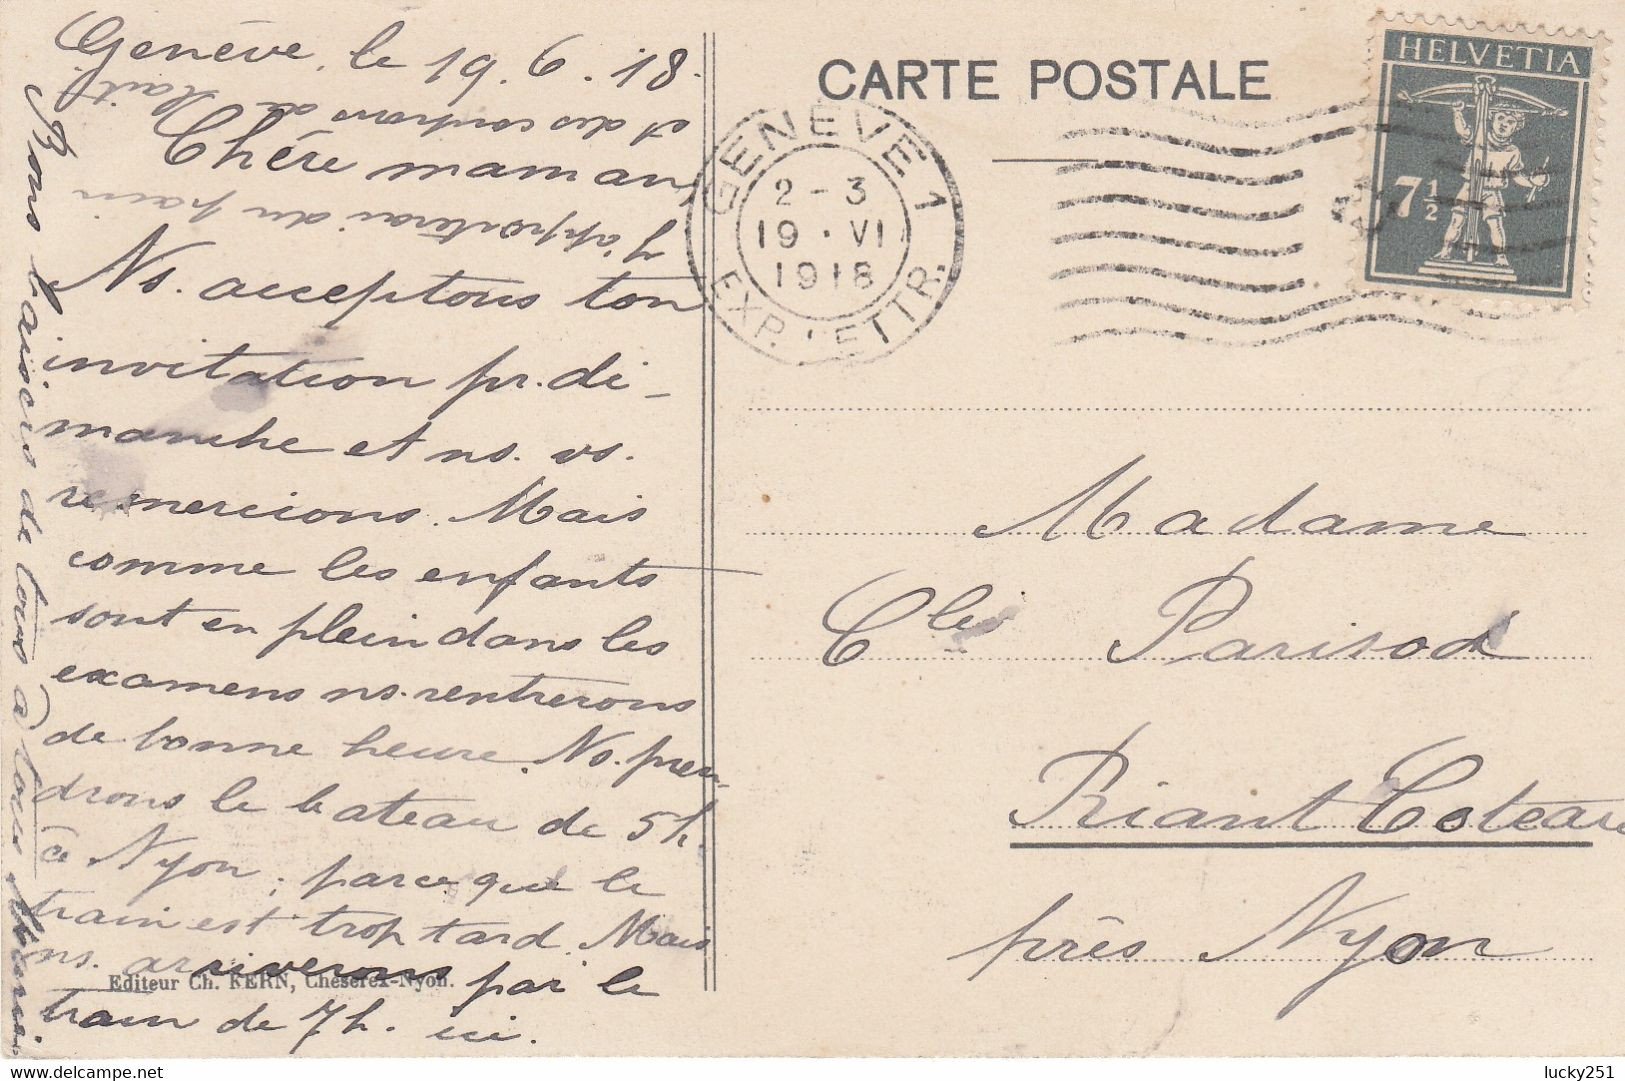 Genève, le 19.6.18.
Chère maman
Ns. acceptons ton
invitation pr. di-
manche et ns. vs.
remercions. Mais
comme les enfants
sont en plein dans les
examens ns. rentrerons
de bonne heure. Ns. pren-
drons le bateau de 5h.
à Nyon, parce que le
train est trop tard. Mais
ns. arriverons par le
train de 7h. ici.
J'apporterai du pain
et des controns de lait
Bons baisers de tous à tous
Editeur Ch. KERN, Cheserex-Nyon.
CARTE POSTALE
GENÈVE 1
2-3
19·VI
1918
EXP. LETTR.
HELVETIA
7½
Madame
Cles Parisod
Riant Coteau
près Nyon
lucky251